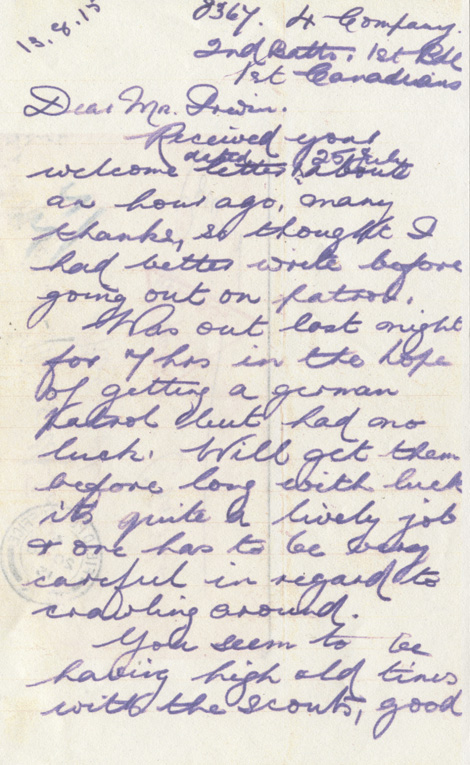 13.8.15
8367. 4 Company.
2nd Batts. 1st Bde
1st Canadians
Dear Mr. Irwin.
Received your
dated 25 July
welcome letter about
an hour ago, many
thanks, so thought I
had better write before
going out on patrol.
Was out last night
for 7 hrs in the hope
of getting a german
patrol but had no
luck. Will get them
before long with luck
it's quite a lively job
& one has to be very
careful in regard to
crawling around.
You seem to be
having high old times
with the scouts, good